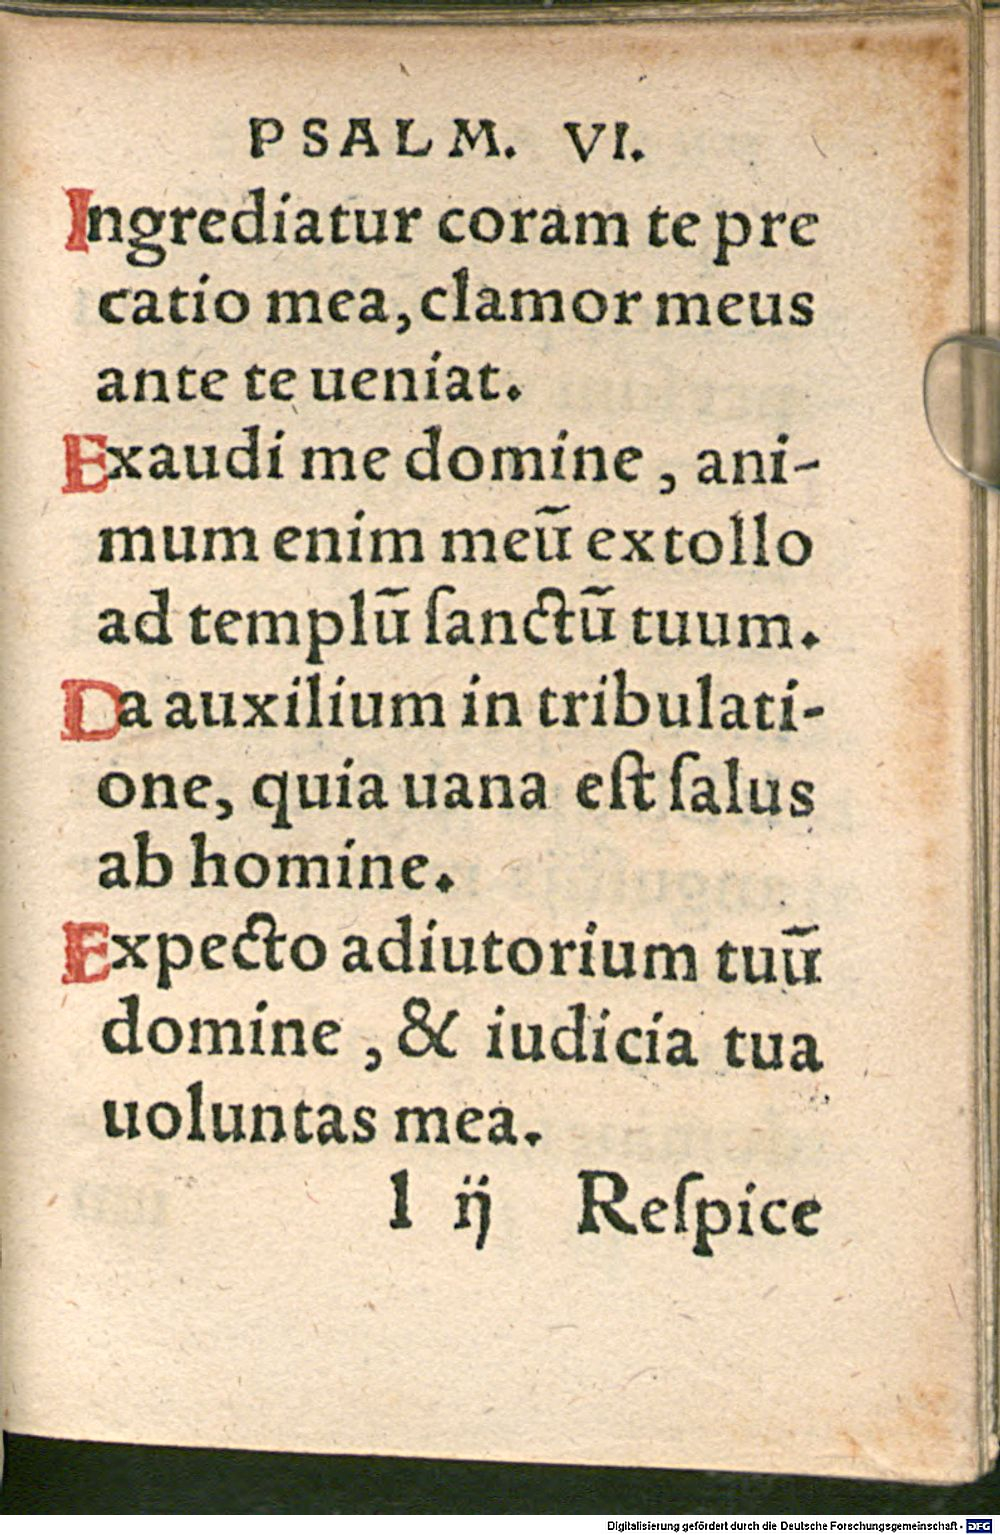 PSALM. VI.
Ingrediatur coram te pre
catio mea, clamor meus
ante te ueniat.
Exaudi me domine, ani-
mum enim meū extollo
ad templū ſanctū tuum.
Da auxilium in tribulati-
one, quia uana eſt ſalus
ab homine.
Expecto adiutorium tuū
domine, & iudicia tua
uoluntas mea.
l ij Reſpice
Digitalisierung gefördert durch die Deutsche Forschungsgemeinschaft - DFG